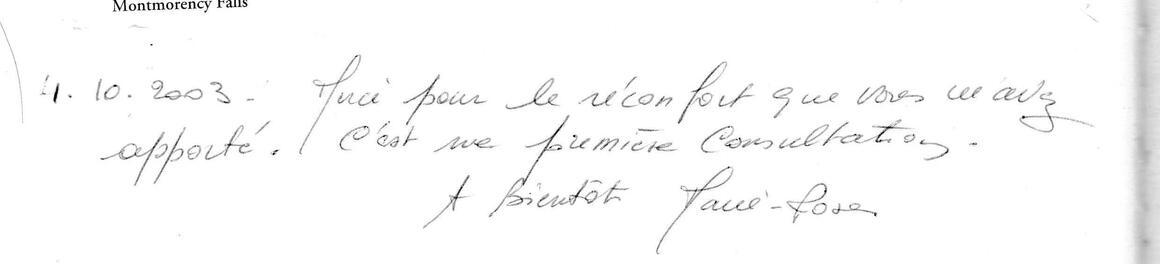 Montmorency Falls
4. 10. 2003. Merci pour le réconfort que vous m'avez
apporté. C'est ma première Consultation.
A Bientôt Marie-Rose